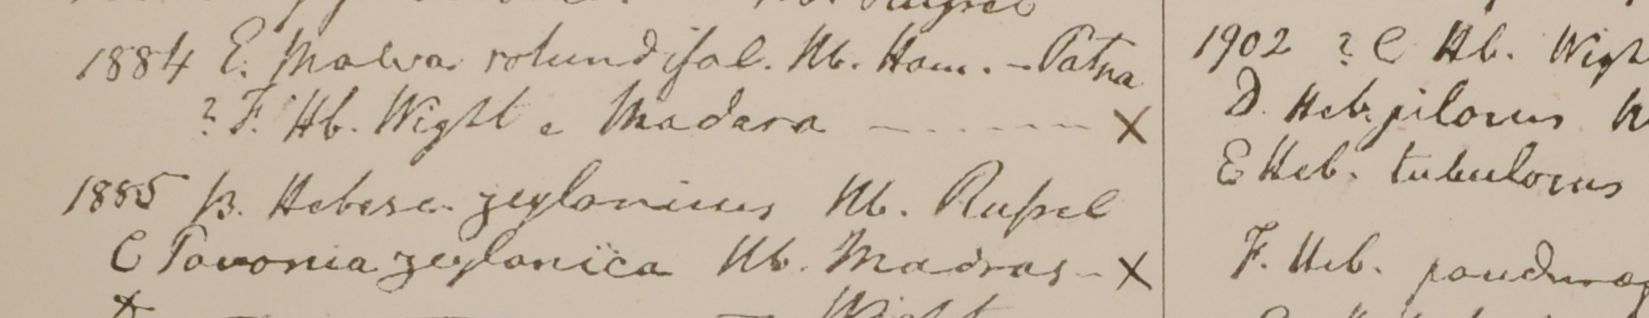 1884 E. Malva rotundifol. Hb. Ham. - Patna
? F. Hb. Wight e Madara - - - - - - X
1885 B. Hebesc. zeylonicus Hb. Rufsel
C Pavonia zeylanica Hb. Madras - X
Wight
1902 ? C Hb.
D. Heb. pilosus
E Heb. tubulosus
F. Heb.